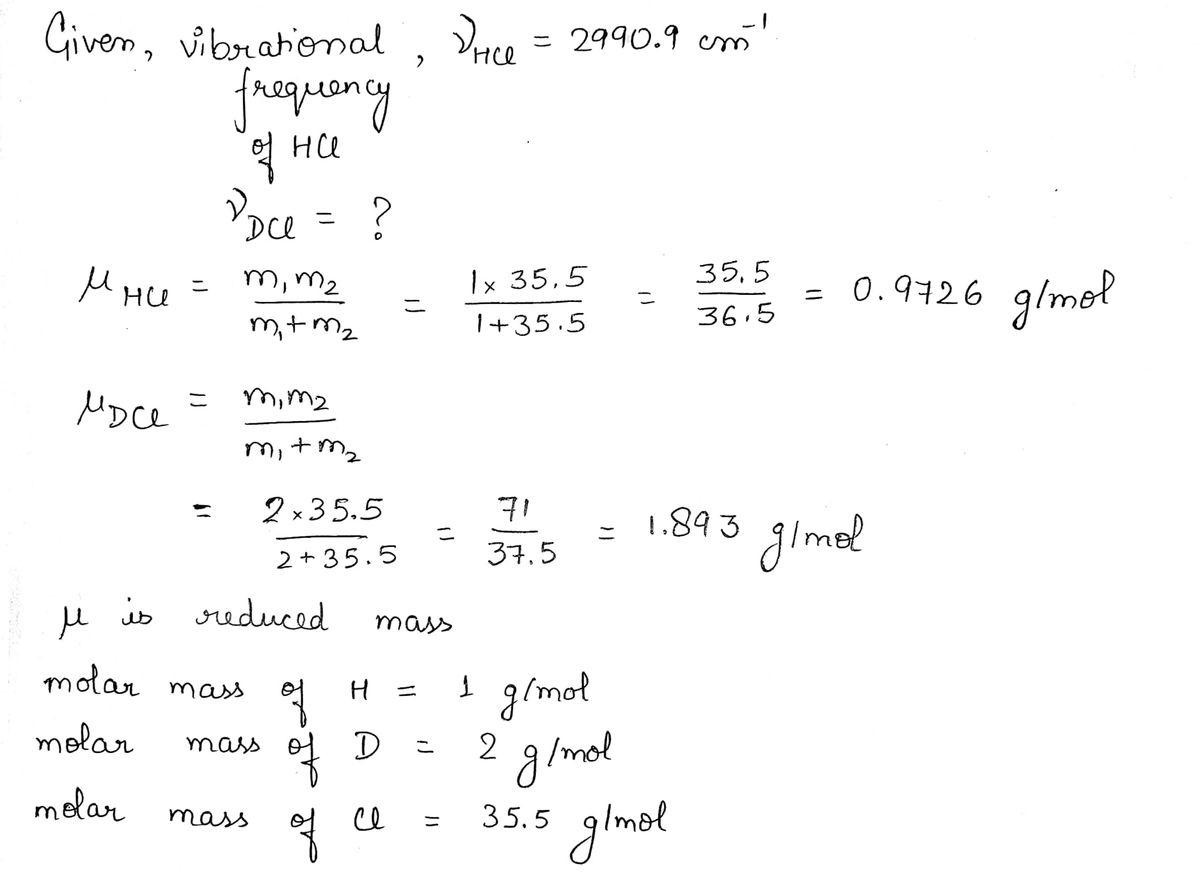 Given, vibrational , ν_HCl = 2990.9 cm⁻¹
frequency
of HCl
ν_DCl = ?
μ_HCl = m₁m₂/(m₁+m₂) = (1×35.5)/(1+35.5) = 35.5/36.5 = 0.9726 g/mol
μ_DCl = m₁m₂/(m₁+m₂)
= (2×35.5)/(2+35.5) = 71/37.5 = 1.893 g/mol
μ is reduced mass
molar mass of H = 1 g/mol
molar mass of D = 2 g/mol
molar mass of Cl = 35.5 g/mol